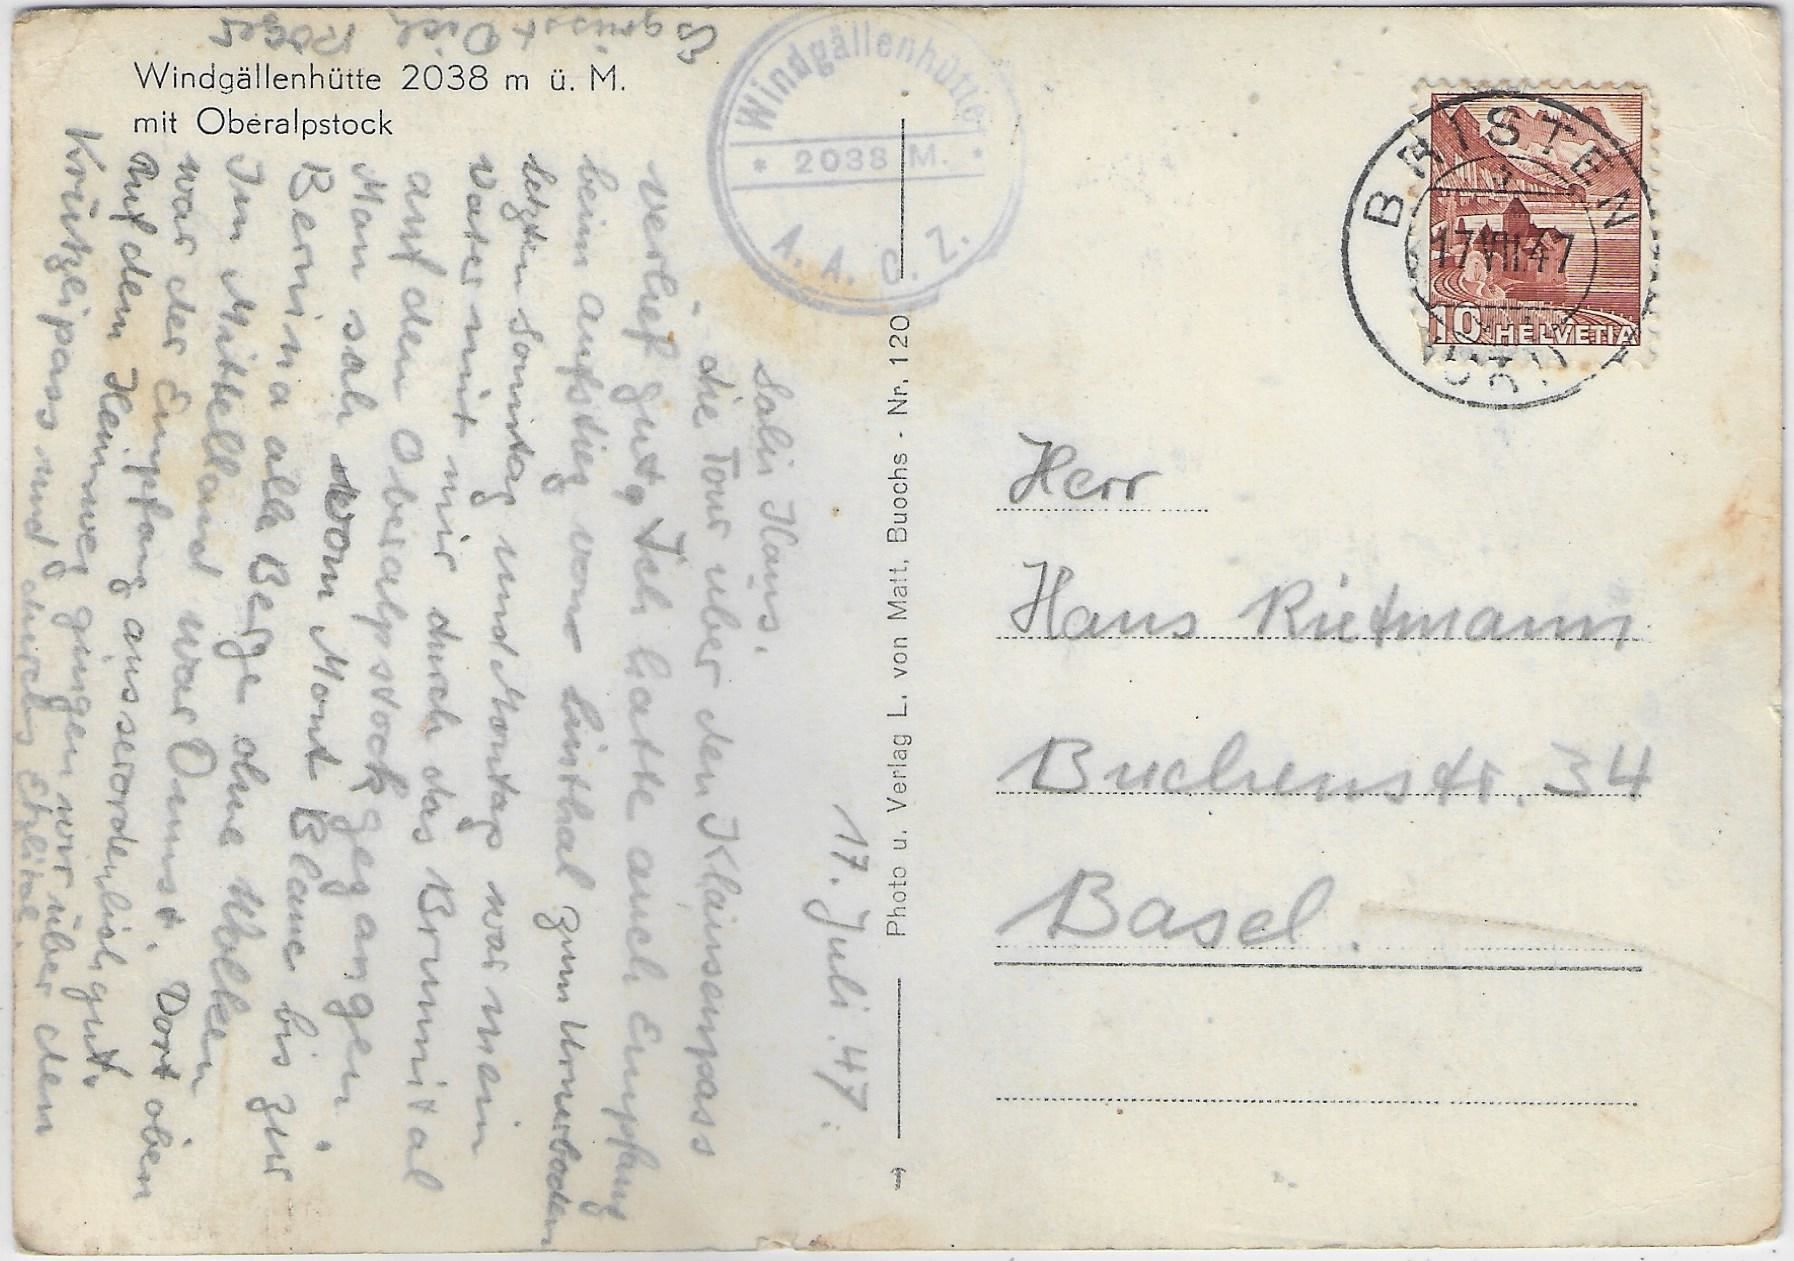 Windgällenhütte 2038 m ü. M.
mit Oberalpstock
Windgällenhütte
* 2038 M. *
A. A. C. Z.
BRISTEN
17.VII.47
(URI)
10 HELVETIA
17. Juli. 47.
Sali Hans,
die Tour über den Klausenpass
verlief gut, Ich hatte auch Empfang
beim aufstieg von Linthal zum Urnerboden
letzten Sonntag und Montag war mein
Vater mit mir durch das Brunnital
auf den Oberalpstock gegangen.
Man sah vom Mont Blanc bis zur
Bernina alle Berge ohne Wolken
Im Mittelland war Dunst. Dort oben
war der Empfang ausserordenlich gut.
Auf dem Heimweg gingen wir über den
Krüzlipass und durchs Etzlital.
Es grüsst Dich Roger
Photo u. Verlag L. von Matt, Buochs - Nr. 120
Herr
Hans Rietmann
Buchenstr. 34
Basel.